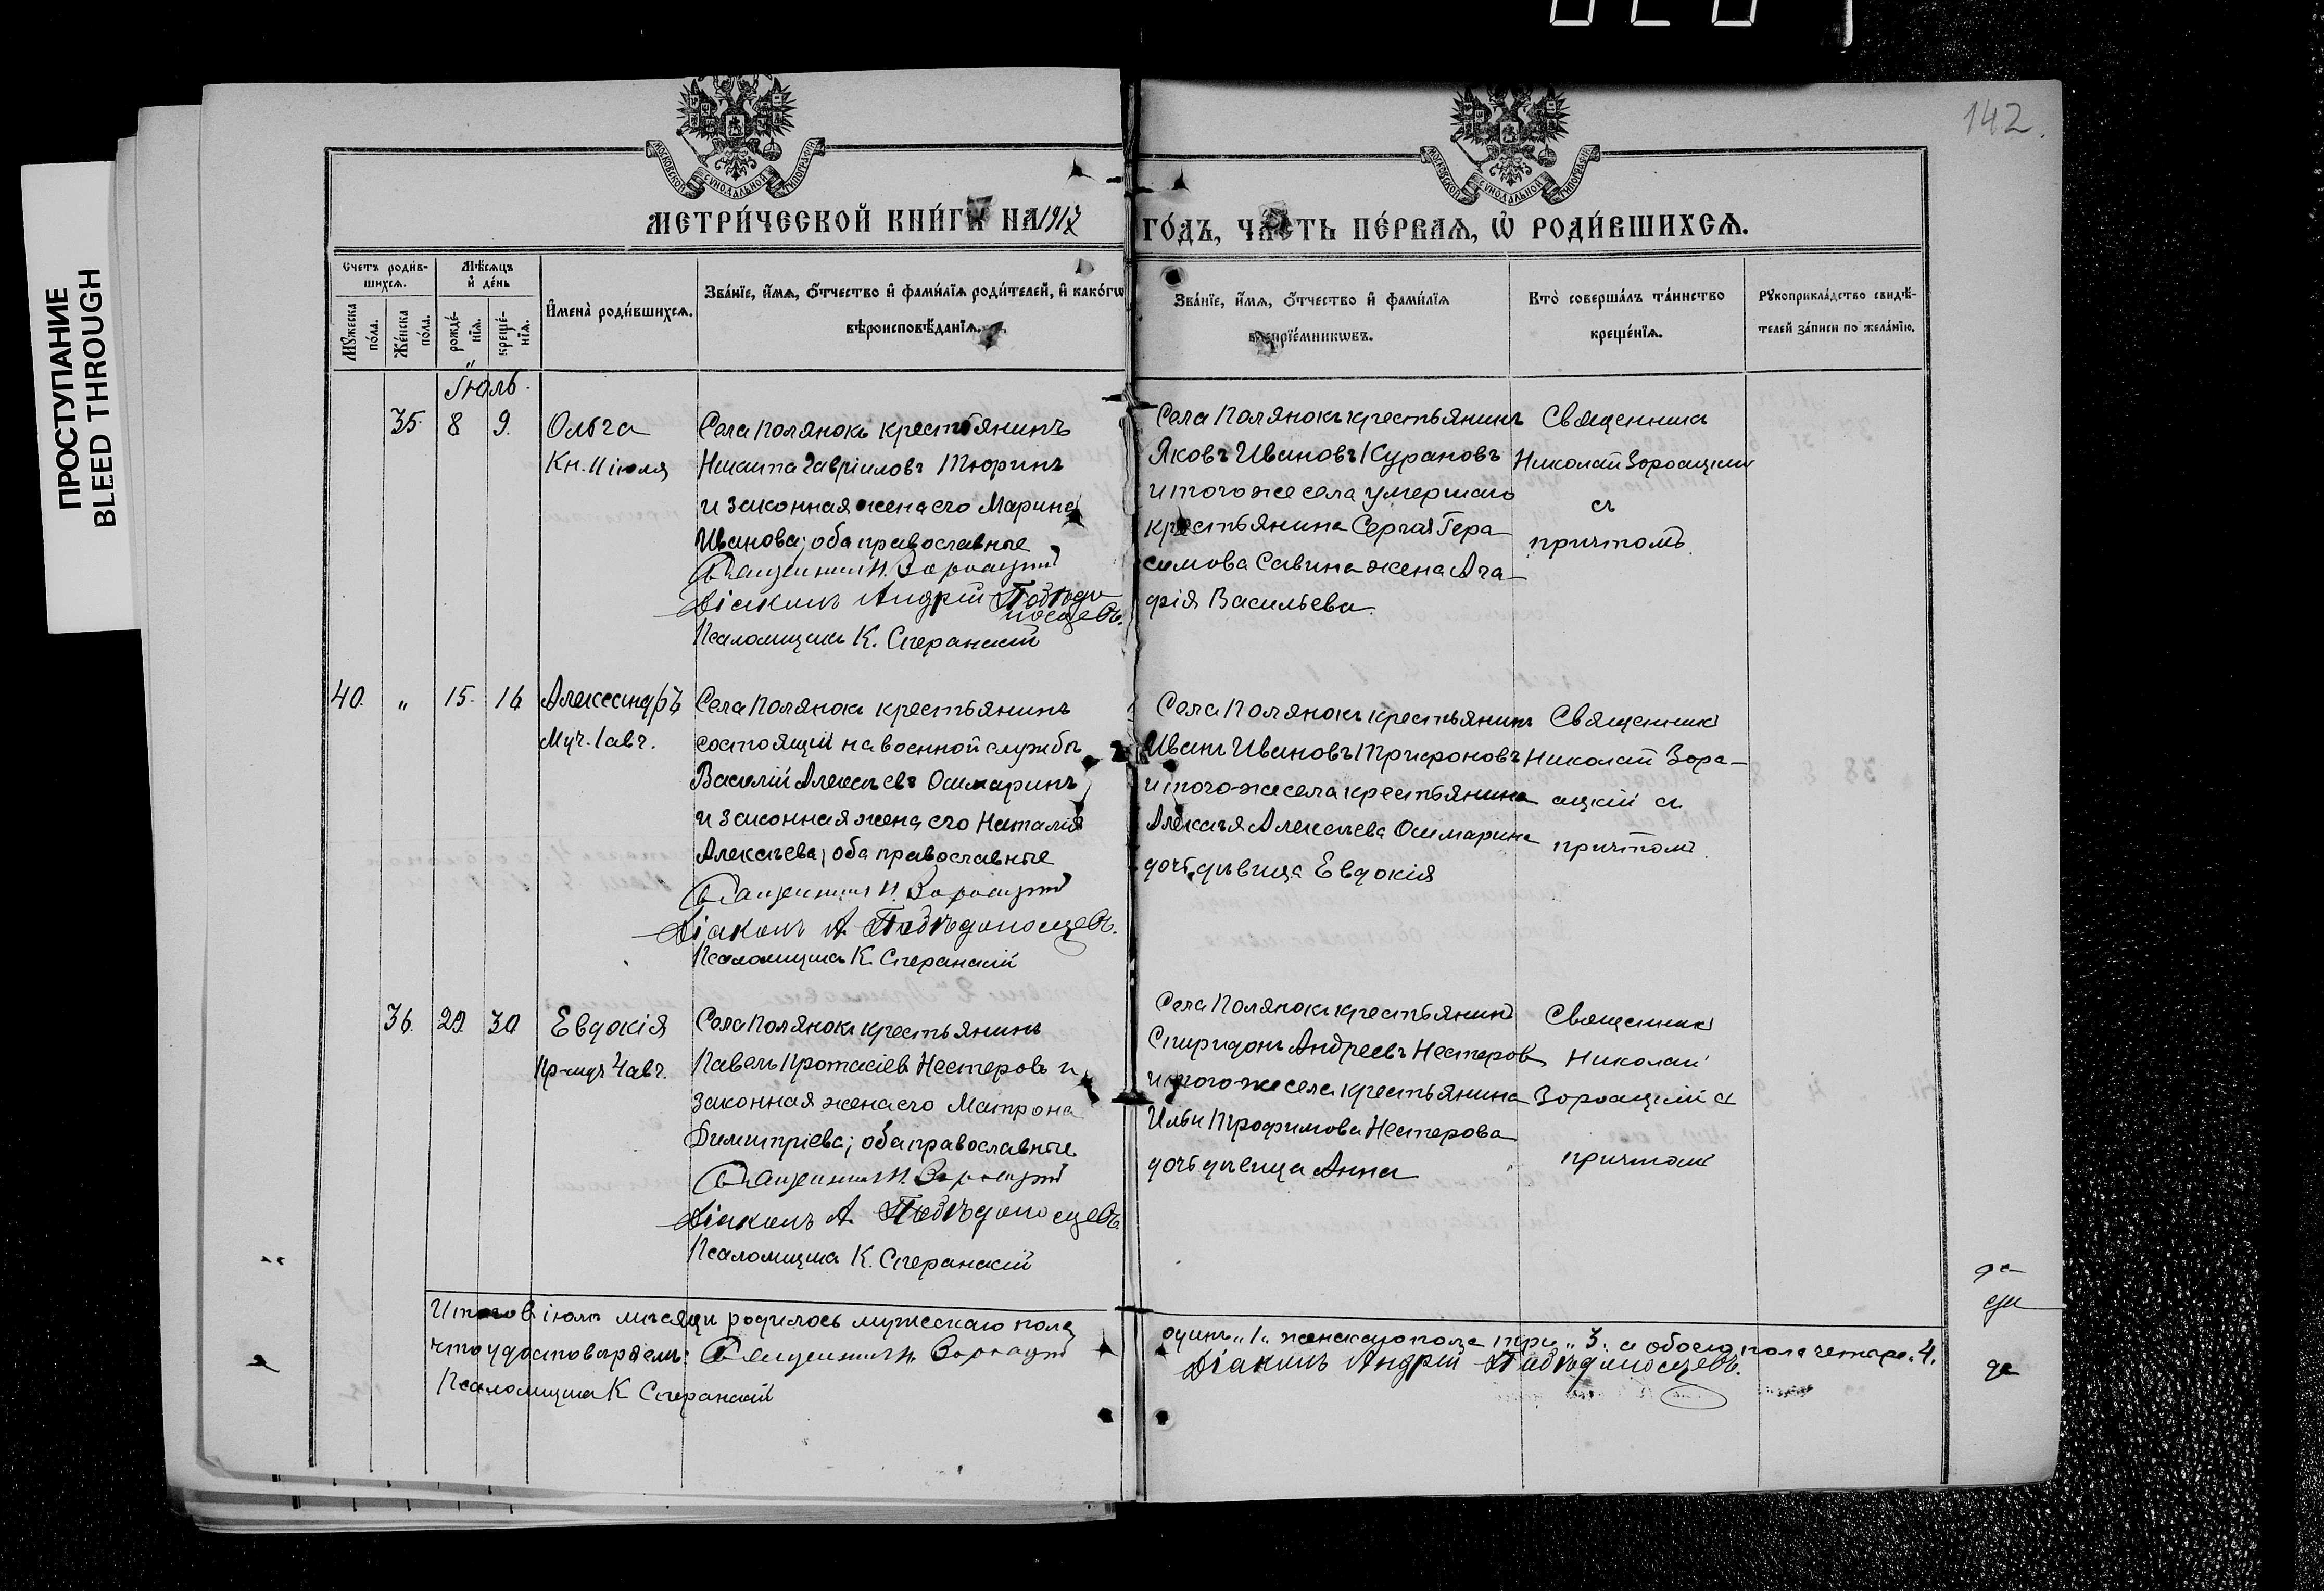 142.
ПРОСТУПАНИЕ
BLEED THROUGH
МОСКОВСКОЙ СѴНОДАЛЬНОЙ ТИПОГРАФІИ
МОСКОВСКОЙ СѴНОДАЛЬНОЙ ТИПОГРАФІИ
МЕТРИ́ЧЕСКОЙ КНИ́ГИ НА 1917 ГО́ДЪ, ЧА́СТЬ ПЕ́РВАѦ, Ѡ҆ РОДИ́ВШИХСѦ.
Счетъ роди́в-
шихсѧ.
Мѣ́сѧцъ
и҆ де́нь
Мꙋжеска по́ла.
Же́нска по́ла.
рожде́-
нїѧ.
креще́-
нїѧ.
И҆мена̀ роди́вшихсѧ.
Зва́нїе, и҆́мѧ, ѻ҆́тчество и҆ фами́лїѧ роди́телей, и҆ како́гѡ
вѣроисповѣ́данїѧ.
Зва́нїе, и҆́мѧ, ѻ҆́тчество и҆ фами́лїѧ
воспрїе́мникѡвъ.
Кто̀ соверша́лъ та́инство
креще́нїѧ.
Рꙋкоприкла́дство свидѣ́-
телей за́писи по жела́нїю.
Іюль.
35. 8 9. Ольга
Кн. 11 іюля
Села Полянокъ крестьянинъ
Никита Гавріиловъ Тюринъ
и законная жена его Марина
Иванова; оба православные
Священникъ Н. Зороацкій
Діаконъ Андрій Побѣдо
носцевъ.
Псаломщикъ К. Сперанскій
Села Полянокъ крестьянинъ
Яковъ Ивановъ Курановъ
и того же села умершаго
крестьянина Сергія Гера
симова Савина жена Ага-
фія Васильева.
Священникъ
Николай Зороацкій
съ
причтомъ.
40. " 15. 16 Александръ
Муч. 1 авг.
Села Полянокъ крестьянинъ
состоящій на военной службѣ
Василій Алексѣевъ Ошмаринъ
и законная жена его Наталія
Алексѣева; оба православные
Священникъ Н. Зороацкій
Діаконъ А. Побѣдоносцевъ.
Псаломщикъ К. Сперанскій
Села Полянокъ крестьянинъ
Иванъ Ивановъ Трифоновъ
и того-же села крестьянина
Алексѣя Алексѣева Ошмарина
дочь дѣвица Евдокія
Священникъ
Николай Зоро-
ацкій съ
причтомъ.
36. 29. 30 Евдокія
Пр-муч. 4 авг.
Села Полянокъ крестьянинъ
Павелъ Протасіевъ Нестеровъ и
законная жена его Матрона
Димитріева; оба православные
Священникъ Н. Зороацкій
Діаконъ А. Побѣдоносцевъ.
Псаломщикъ К. Сперанскій
Села Полянокъ крестьянинъ
Спиридонъ Андреевъ Нестеровъ
и того-же села крестьянина
Ильи Трофимова Нестерова
дочь дѣвица Анна
Священникъ
Николай
Зороацкій съ
причтомъ
Итого въ іюлѣ мѣсяцѣ родилось мужескаго пола один „1„ женскаго пола три „3„ а обоего пола четыре „4.
что удостовѣряемъ: Священникъ Н. Зороацкій Діаконъ Андрій Побѣдоносцевъ.
Псаломщикъ К Сперанскій